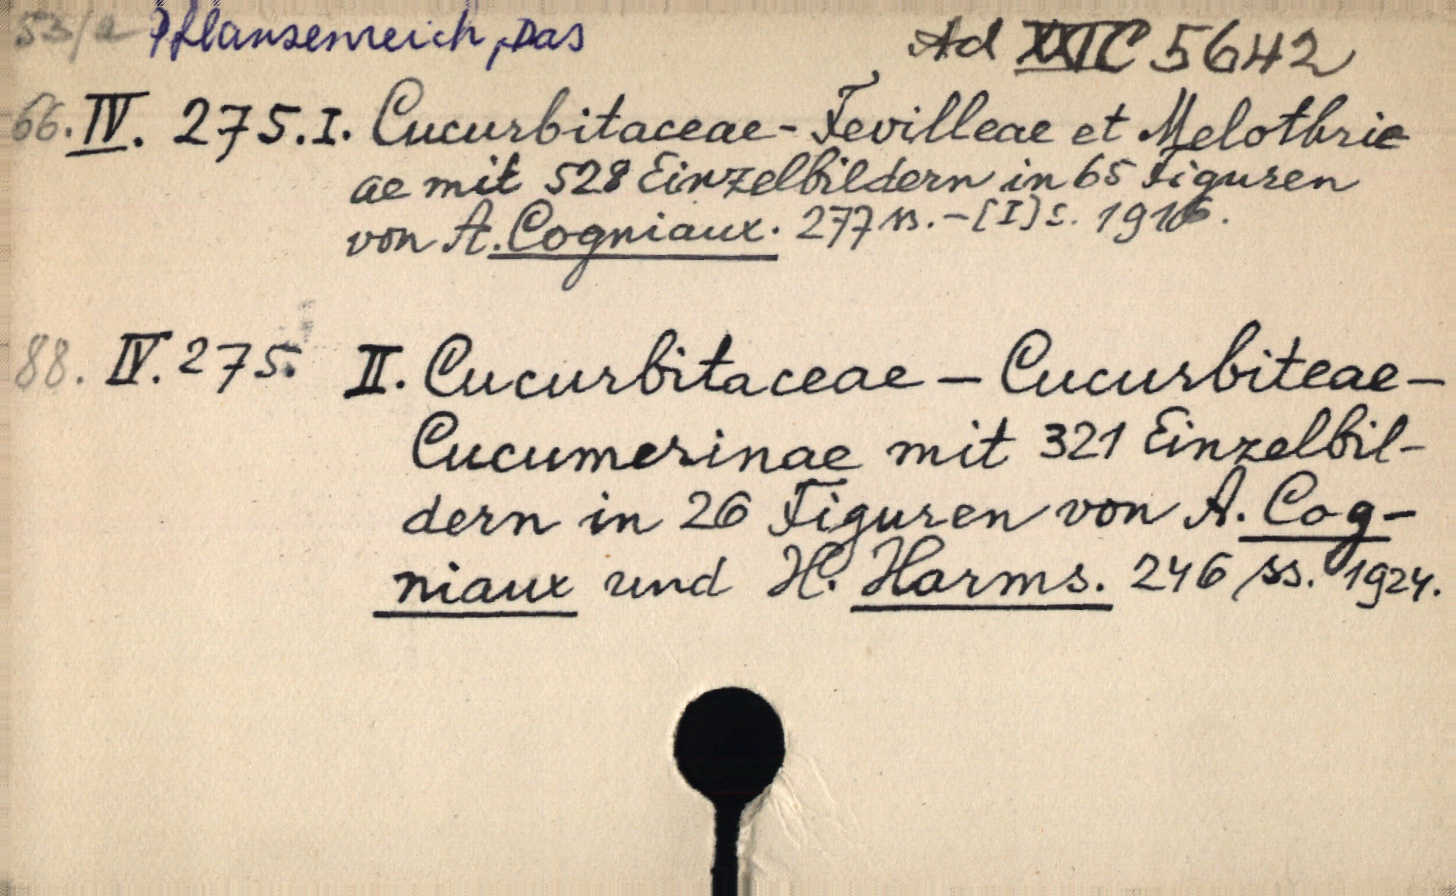 53/a Pflanzenreich, Das Ad XXIC 5642
66. IV. 275. I. Cucurbitaceae - Fevilleae et Melothrie
ae mit 528 Einzelbildern in 65 Figuren
von A. Cogniaux. 277 ss. - [I] s. 1916.
88. IV. 275. II. Cucurbitaceae - Cucurbiteae -
Cucumerinae mit 321 Einzelbil-
dern in 26 Figuren von A. Cog-
niaux und H. Harms. 246 ss. 1924.